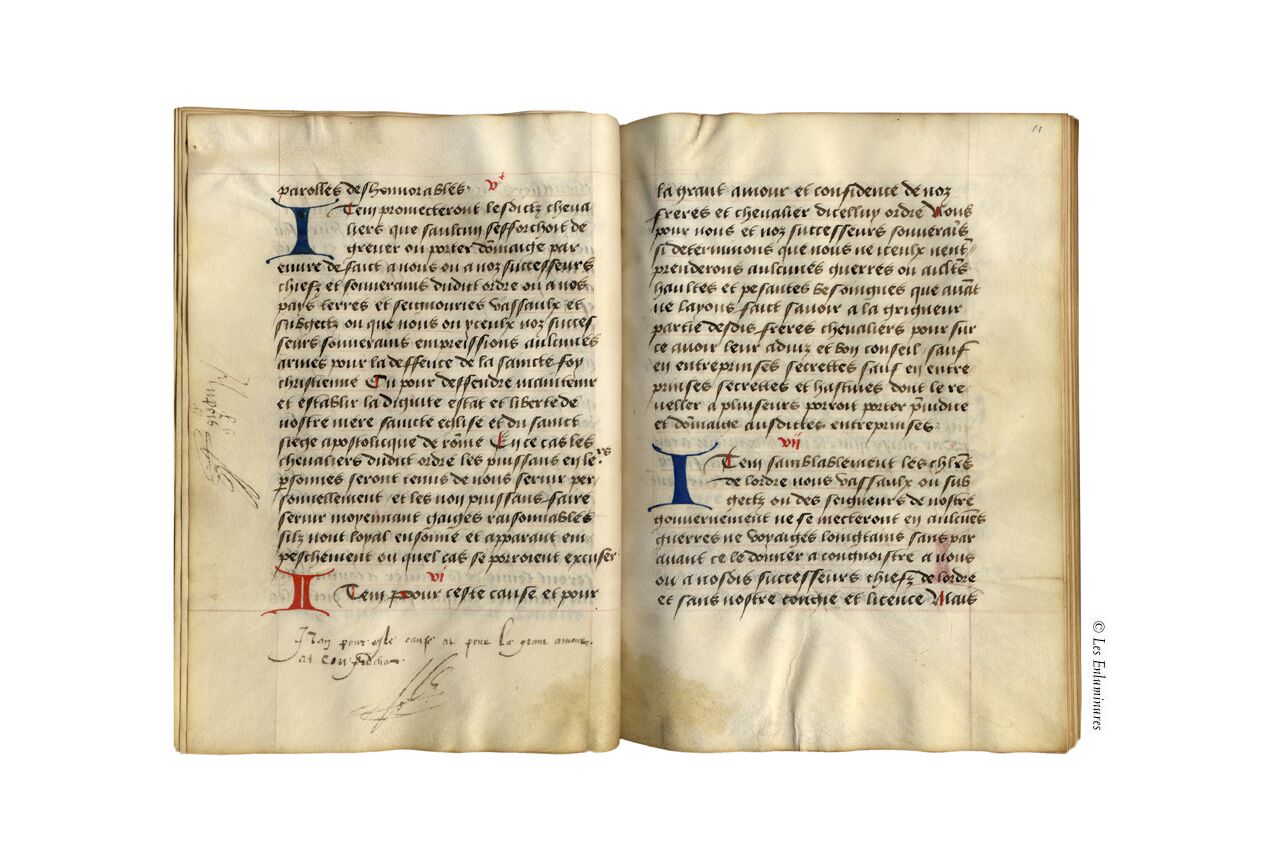 parolles deshonnorables.
v.e
Item promecteront lesdictz cheva
liers que saulcun sefforchoit de
grever ou porter dommaige par
euvre de faict a nous ou a noz successeurs
chiefz et souverains dudict ordre ou a nos
pays terres et seignouries vassaulx et
subgectz ou que nous ou yceulx noz succes
seurs souverains empreissions aulcunes
armes pour la deffence de la saincte foy
christienne Ou pour deffendre maintenir
et establir la dignite estat et liberte de
nostre mere saincte eglise et du sainct
siege apostolique de rome En ce cas les
chevaliers dudict ordre les puissans en leurs
personnes seront tenus de nous servir per
sonnellement et les non puissans faire
servir moyennant gaiges raisonnables
silz nont loyal ensonne et apparant em
peschement ou quel cas se porroient excuser
vi
Item pour ceste cause et pour
Iton pour ceste cause et pour la grant amour
et confidence
la grant amour et confidence de noz
freres et chevalier dicelluy ordre Nous
pour nous et noz successeurs souverains
si determinons que nous ne iceulx nent
prenderons aulcunes guerres ou aultres
haultes et pesantes besoingnes que avant
ne layons faict savoir a la grigneur
partie desdis freres chevaliers pour sur
ce avoir leur adviz et bon conseil sauf
en entreprinses secrettes sauf en entre
prinses secrettes et hastives dont le re
veller a pluiseurs porroit porter preiudice
et dommaige ausdictes entreprinses.
vii
Item samblablement les chlrs
de lordre nous vassaulx ou sub
gectz ou des seigneurs de nostre
gouvernement ne se mecteront en aulcunes
guerres ne voyaiges loingtains sans par
avant ce le donner a congnoistre a nous
ou a nosdis successeurs chiefz de lordre
et sans nostre congie et licence Mais
© Les Enluminures